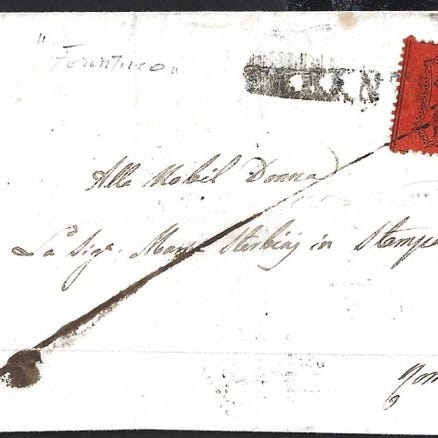 " Ferentino "
Alla Nobil Donna
La Sigª. Maria Sterbinj in Stampe